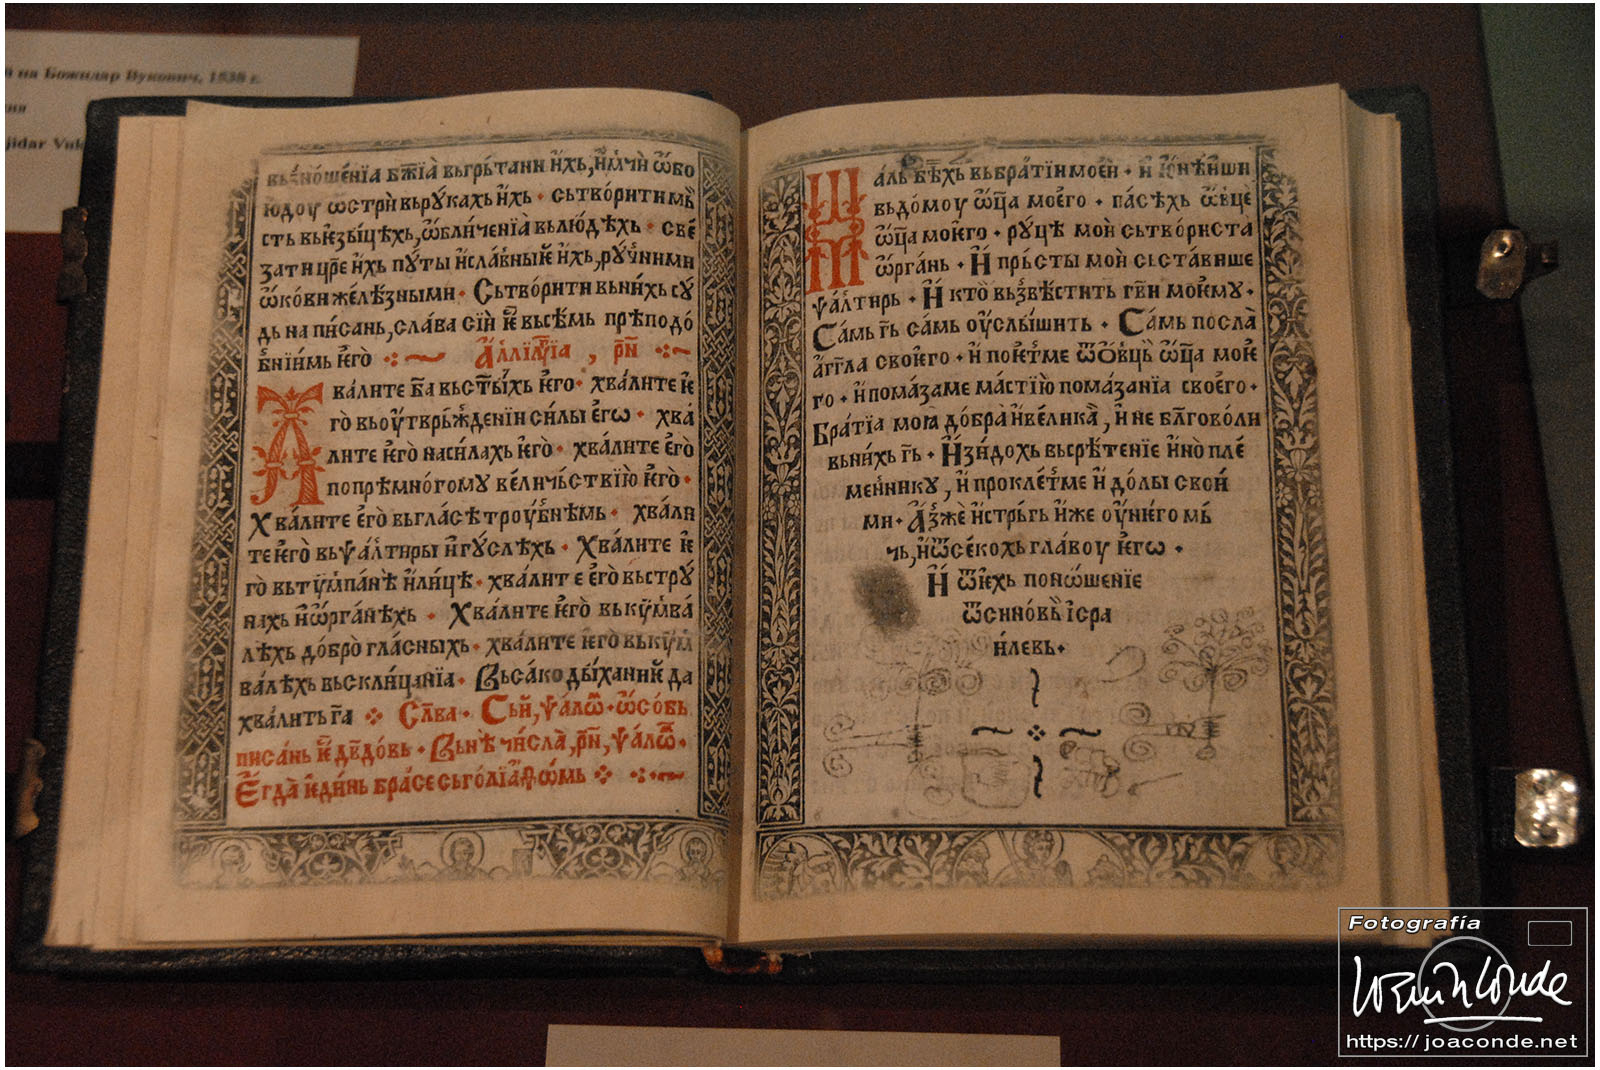 на Божидар Вукович, 1538 г.
jidar Vuk
вьꙁно́шенїа бж҃їа̀ вьгрьтани и҆́хь, и҆мчѝ ѡ҆бо
ю́доу ѡ҆стрѝ вьру́кахь и҆́хь • сьтво́рити мь̀
сть вьѥзы́цѣхь, ѡ҆бличе́нїа̀ вьлю́дѣхь • све́
зати цр҃е и҆́хь пу́ты и҆сла́вныѥ и҆́хь, ру́чними
ѡ҆кови желѣ́зными • Сьтво́рити вьни́хь су́
дь на пи́сань, сла́ва сїѝ ѥ҆ вьсѣ́мь прѣподо́
бнїимь ѥ҆го̀ А҆ллилꙋ́їа, рн҃
хва́лите б҃а вьст҃ы́хь ѥ҆го • хва́лите ѥ҆
го̀ вьоу҆тврьжде́нїи си́лы е҆гѡ • хва́
лите ѥ҆го̀ наси́лахь ѥ҆го̀ • хва́лите е҆го̀
попрѣмно́гому ве́личьствїю̀ ѥ҆го̀ •
Хва́лите е҆го̀ вьгла́сѣ троу́бнѣмь • хва́ли
те ѥ҆го̀ вьѱа́лтыры и҆гу́слѣхь • Хва́лите ѥ҆
го̀ вьтѷмпа́нѣ и҆ли́цѣ • хва́лите е҆го̀ вьстру́
нахь и҆ѡ҆рга́нѣхь • Хва́лите ѥ҆го̀ вькѷмва́
лѣхь до́бро̀ гла́сныхь • хва́лите ѥ҆го̀ вькѷм
ва́лѣхь вьскли́цанїа • Вьса́ко ды́ханиѥ да
хва́лить г҃а Сла́ва • Сьи, ѱа́лѡ • ѡ҆со́вь
писа́нь ѥ҆ дв҃до́вь • Вьнѣ̀ чи́сла̀, рн҃, ѱа́лѡ •
Е҆гда̀ ѥ҆ди́нь бра́се сьголїа́ѳѡмь
Ма́ль бѣ́хь вьбра́тїи мое́и • и҆ ю҆нѣ́иши
вьдо́моу ѡ҆ц҃а мое́го • па́сѣхь ѡ҆вце
ѡ҆ц҃а моѥ́го • ру́цѣ моѝ сьтво́риста
ѡ҆рга́нь • И҆ прь́сты моѝ сьста́више
ѱа́лтирь • И҆ кто̀ вьꙁвѣ́стить гв҃и моѥ́му •
Са́мь г҃ь са́мь оу҆слы́шить • Са́мь посла̀
а҆гг҃ла своѥ́го • и҆ поѥ́тме ѿѡ҆вць ѡ҆ц҃а моѥ́
го • и҆пома́заме ма́стїю̀ пома́занїа свое́го •
Бра́тїа моꙗ до́бра̀ и҆ве́лика̀, и҆ не бл҃гово́ли
вьни́хь г҃ь • И҆зи́дохь вьсрѣ́тенїе и҆но̀пле́
ме́ннику, и҆ прокле́тме и҆ до́лы свои́
ми • А҆ꙁжѐ и҆стрь́гь и҆же оу҆ни́го мь́
чь, и҆ѿсе́кохь гла́воу ѥ҆гѡ •
И҆ ѿѥ́хь поно́шенїе
ѿсино́вь і҆сра
и́левь •
Fotografía
https:// joaconde.net